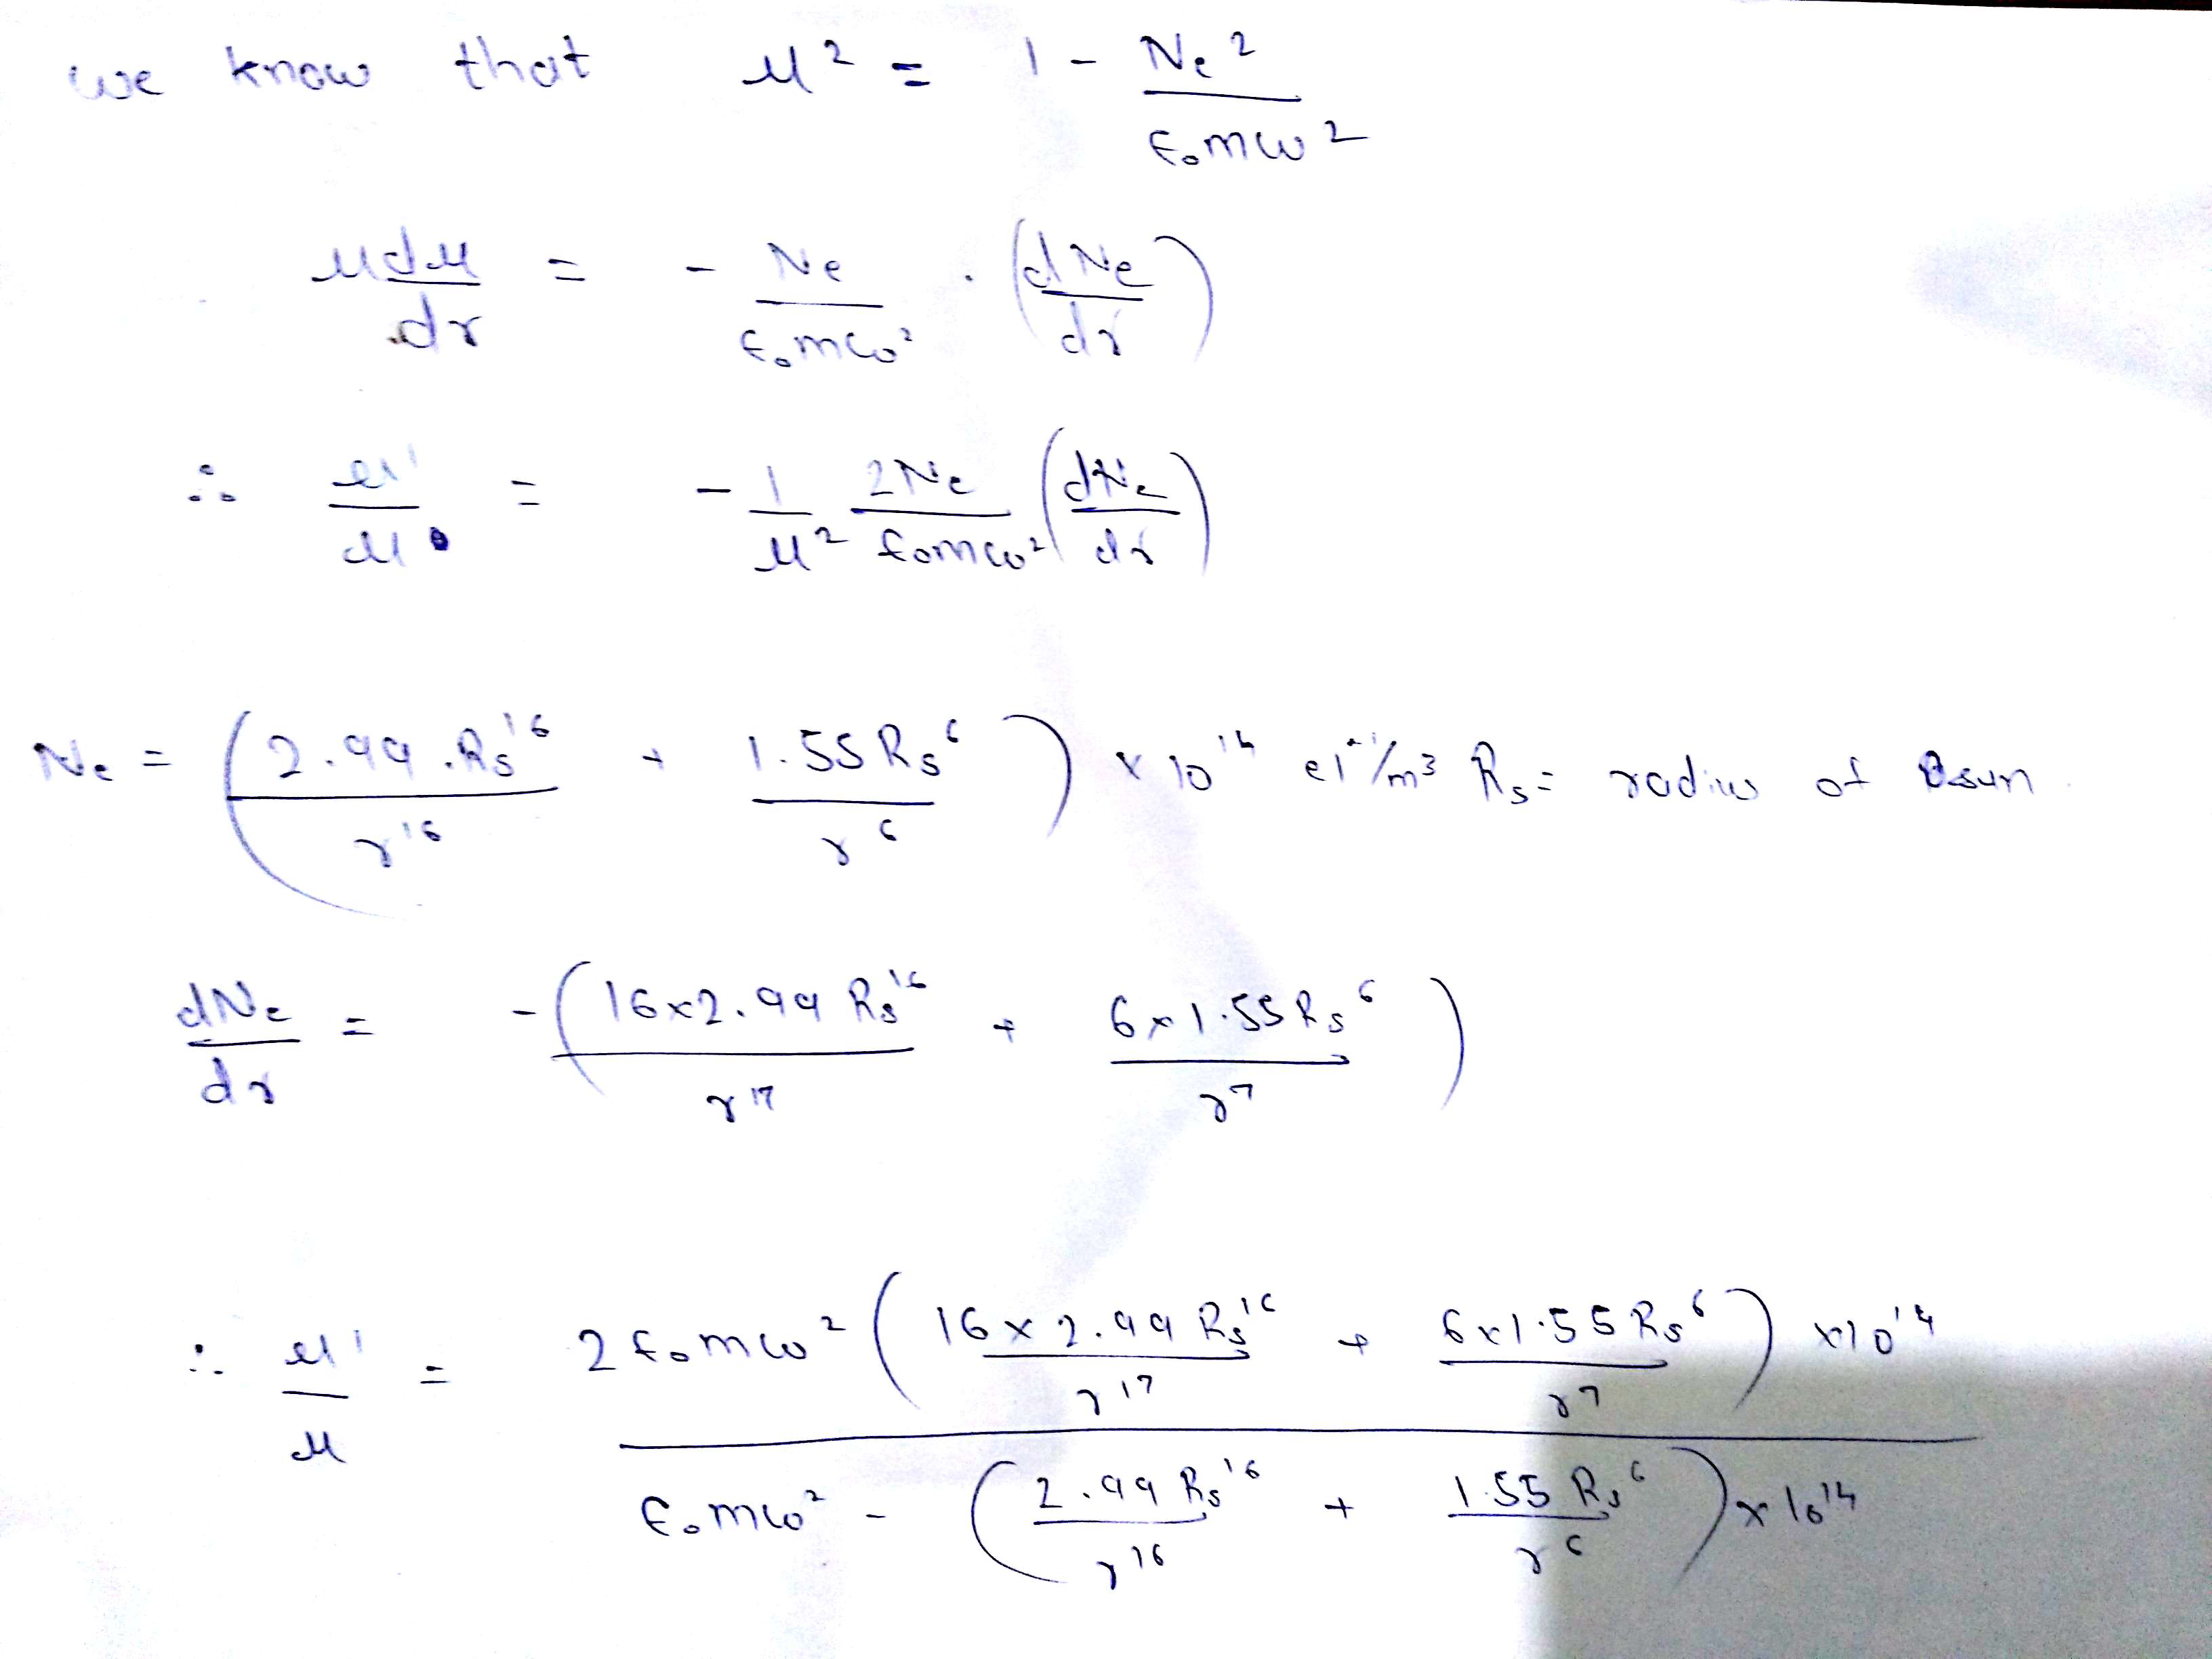 we know that μ² = 1 - Ne² / ε₀mω²
μdμ/dr = - Ne/ε₀mω² · (dNe/dr)
∴ μ'/μ = - 1/μ² 2Ne/ε₀mω² (dNe/dr)
Ne = (2.99 . Rs¹⁶ / r¹⁶ + 1.55 Rs⁶ / r⁶) × 10¹⁴ /m³ Rs = radius of sun
dNe/dr = - (16×2.99 Rs¹⁶ / r¹⁷ + 6×1.55 Rs⁶ / r⁷)
∴ μ'/μ = 2 ε₀mω² (16×2.99 Rs¹⁶ / r¹⁷ + 6×1.55 Rs⁶ / r⁷) ×10¹⁴ / ε₀mω² - (2.99 Rs¹⁶ / r¹⁶ + 1.55 Rs⁶ / r⁶) × 10¹⁴